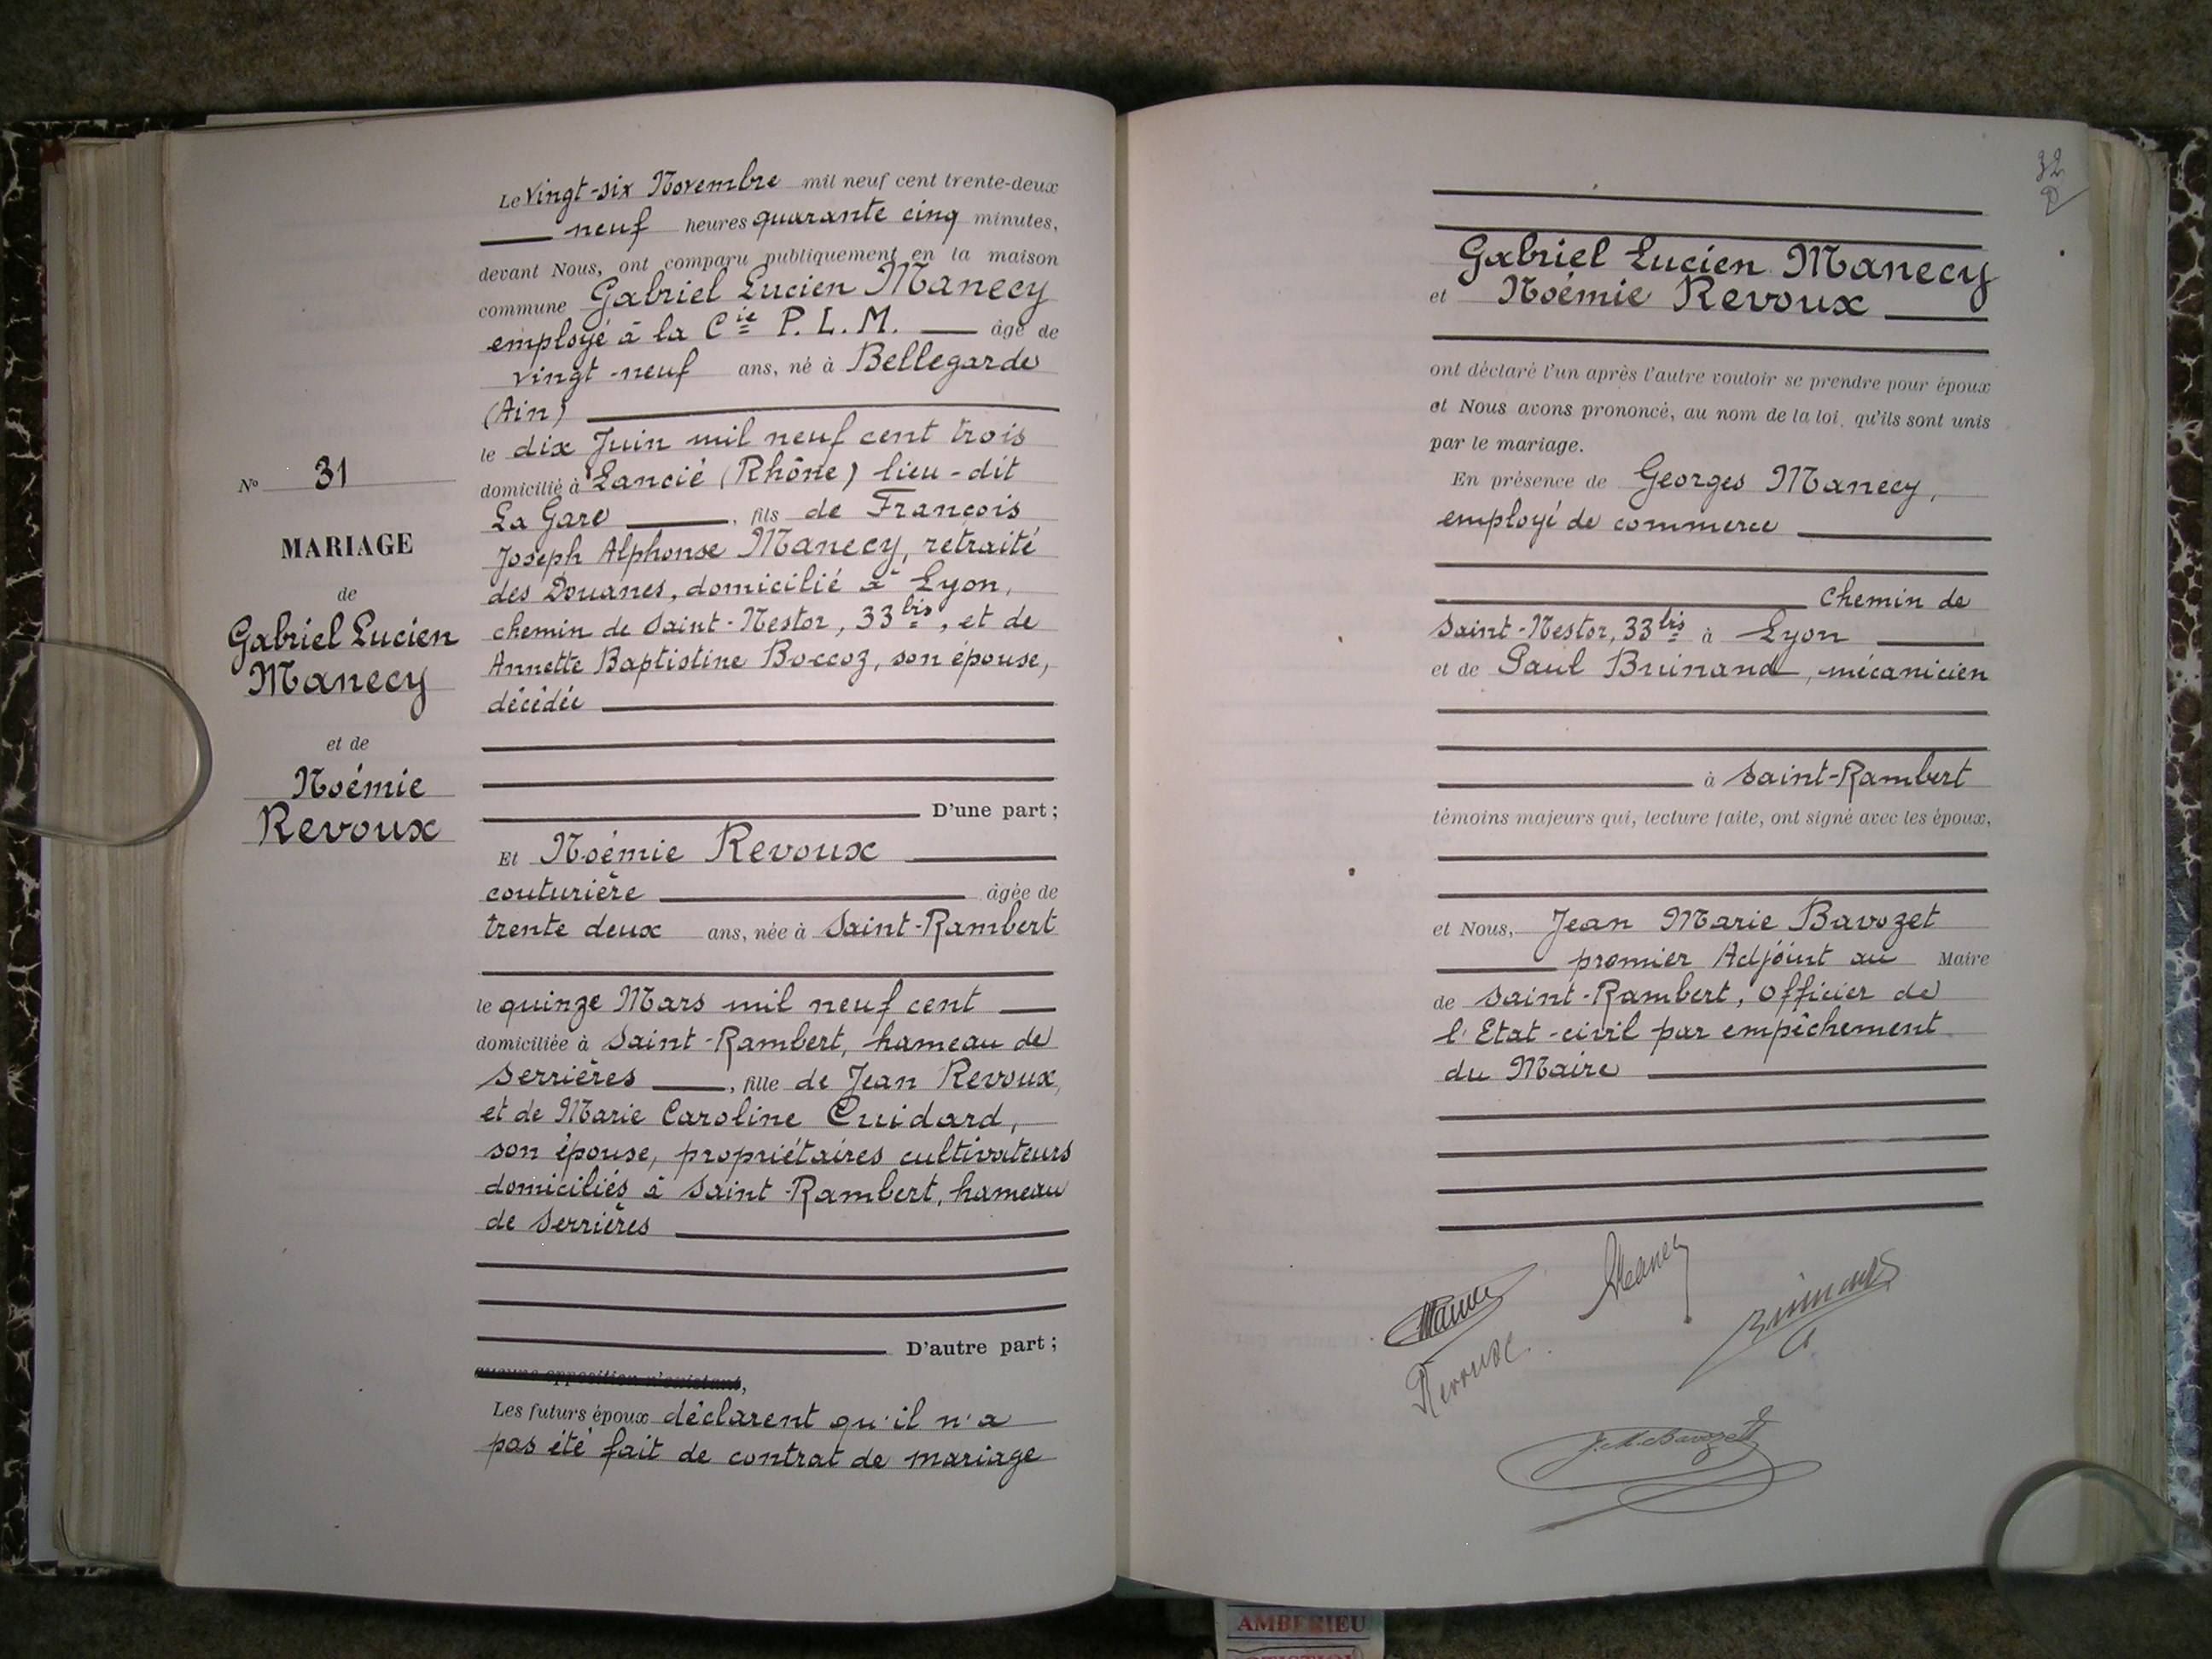 Le Vingt-six Novembre mil neuf cent trente-deux
neuf heures quarante cinq minutes,
devant Nous, ont comparu publiquement en la maison
commune Gabriel Lucien Manecy
employé à la Cie P. L. M. âgé de
vingt-neuf ans, né à Bellegarde
(Ain)
le dix Juin mil neuf cent trois
domicilié à Lancié (Rhône) lieu-dit
La Gare, fils de François
Joseph Alphonse Manecy, retraité
des Douanes, domicilié à Lyon,
chemin de Saint-Nestor, 33 bis, et de
Annette Baptistine Boccoz, son épouse,
décédée
D'une part;
Et Noémie Revoux
couturière âgée de
trente deux ans, née à Saint-Rambert
le quinze Mars mil neuf cent
domiciliée à Saint-Rambert, hameau de
Serrières, fille de Jean Revoux,
et de Marie Caroline Cuidard,
son épouse, propriétaires cultivateurs
domiciliés à Saint-Rambert, hameau
de Serrières
D'autre part;
aucune opposition n'existant,
Les futurs époux déclarent qu'il n'a
pas été fait de contrat de mariage
No 31
MARIAGE
de
Gabriel Lucien
Manecy
et de
Noémie
Revoux
32
Gabriel Lucien Manecy
et Noémie Revoux
ont déclaré l'un après l'autre vouloir se prendre pour époux
et Nous avons prononcé, au nom de la loi, qu'ils sont unis
par le mariage.
En présence de Georges Manecy,
employé de commerce
Chemin de
Saint-Nestor, 33 bis à Lyon
et de Paul Bruinand, mécanicien
à Saint-Rambert
témoins majeurs qui, lecture faite, ont signé avec les époux,
et Nous, Jean Marie Bavozet
premier Adjoint au Maire
de Saint-Rambert, Officier de
l'Etat-civil par empêchement
du Maire
Manecy
Revoux
J. M. Bavozet
AMBERIEU